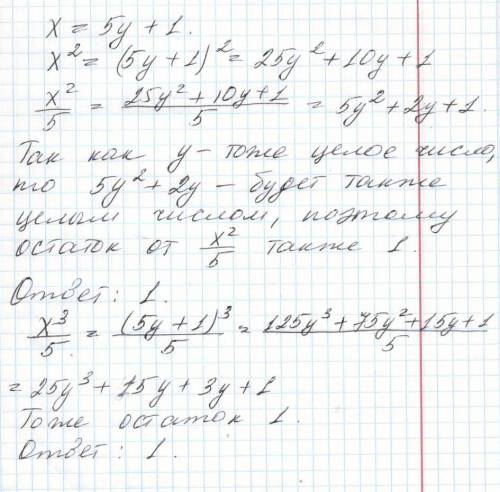 x = 5y + 1.
x² = (5y + 1)² = 25y² + 10y + 1
x²/5 = (25y² + 10y + 1)/5 = 5y² + 2y + 1.
Так как y – тоже целое число,
то 5y² + 2y – будет также
целым числом, поэтому
остаток от x²/5 также 1.
Ответ: 1.
x³/5 = (5y + 1)³/5 = (125y³ + 75y² + 15y + 1)/5
= 25y³ + 15y + 3y + 1
Тоже остаток 1.
Ответ: 1.